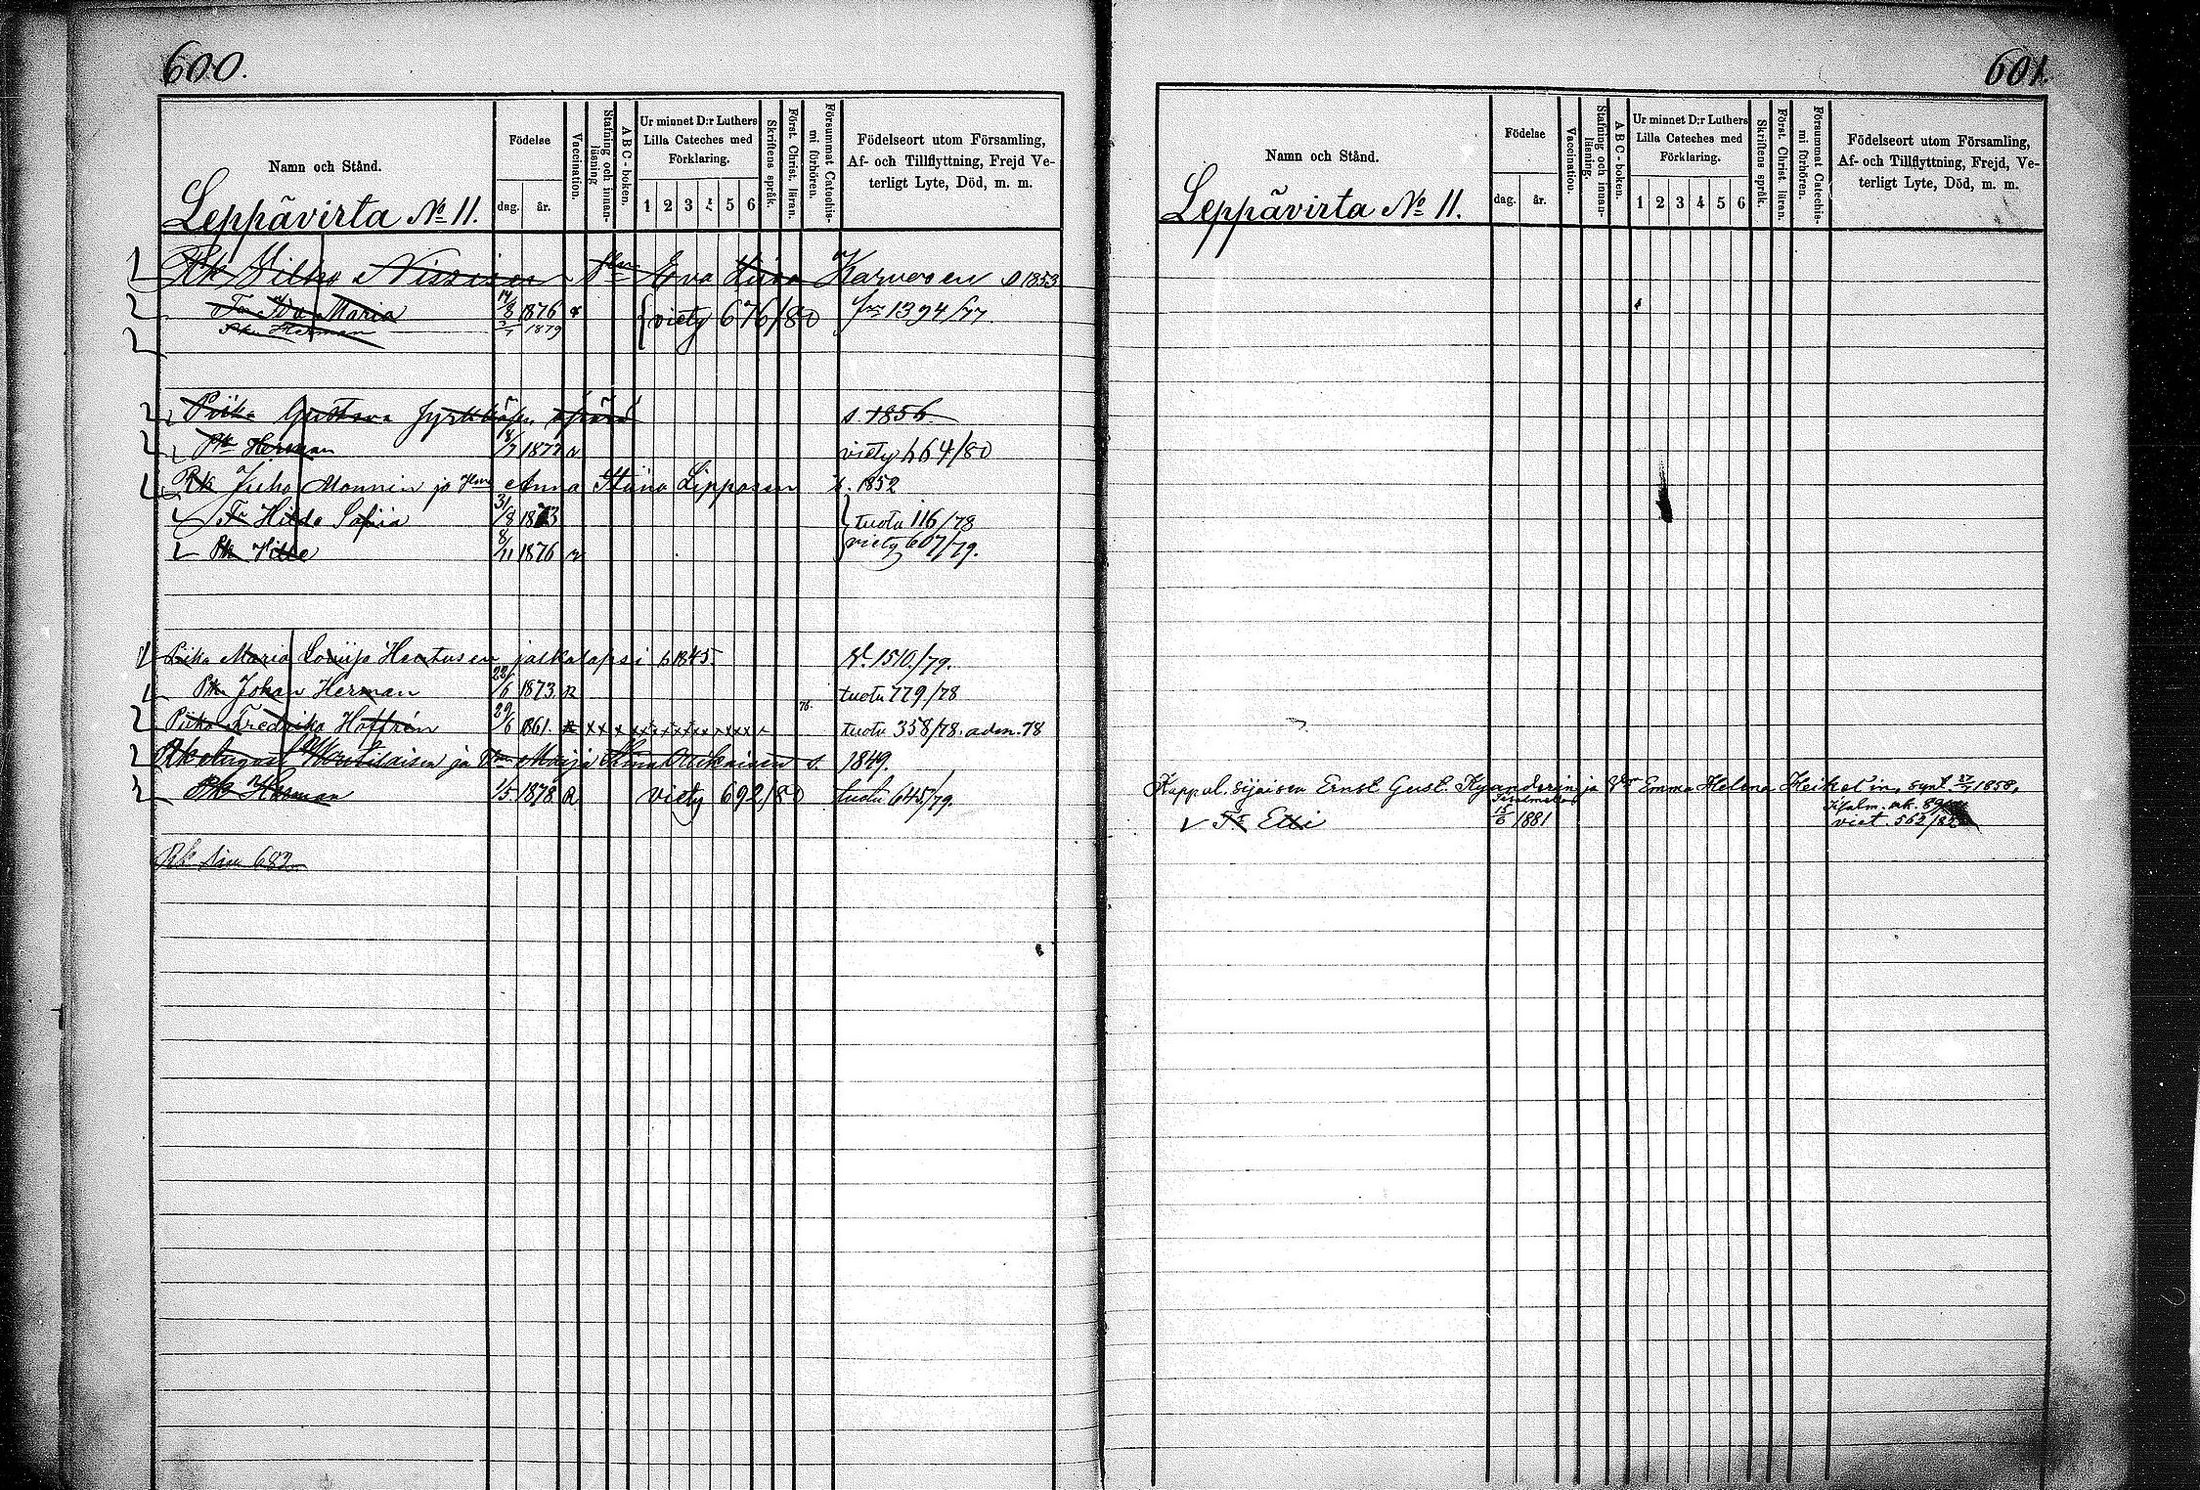 600.
Namn och Stånd.
Födelse
dag.
år.
Vaccination.
Stafning och innanläsning
ABC-boken.
Ur minnet D:r Luthers Lilla Cateches med Förklaring.
1 2 3 4 5 6
Skriftens språk.
Först. Christ. läran.
Försummat Catechismi förhören.
Födelseort utom Församling, Af- och Tillflyttning, Frejd Veterligt Lyte, Död, m. m.
Leppävirta No 11.
Rk Wilho Nissinen Eva Karvosen s 1853
Tr Ida Maria 14/3 1876 viety 676/80 1394/77
Pk Herman 1879
Piika Gustava s. 1856.
Pk Herman 18/7 1877 viety 664/80
Rk Juho Monnin ja Anna Stiina Lipposen 1852
Tr Hilda Sofiia 31/8 1873 tuotu 116/78
Pk Ville 8/11 1876 viety 607/79.
Piika Maria Loviisa Hartusen jalkalapsi s 1845. 1510/79.
Pk Johan Herman 28/6 1873 tuotu 779/78
Piika Fredrika Hoffrén 29/6 1861. x x x x x x x x x x 76. tuotu 358/78. adm. 78
Rk August ja Maija Stina s. 1849.
Pk Herman 1/5 1878 viety 692/80 tuotu 645/79.
Rk Siv. 682.
601.
Namn och Stånd.
Födelse
dag.
år.
Vaccination.
Stafning och innanläsning.
ABC-boken.
Ur minnet D:r Luthers Lilla Cateches med Förklaring.
1 2 3 4 5 6
Skriftens språk.
Först. Christ. läran.
Försummat Catechismi förhören.
Födelseort utom Församling, Af- och Tillflyttning, Frejd, Veterligt Lyte, Död, m. m.
Leppävirta No 11.
Kappal. sijaisen Ernst Gust. Kyanderin ja Vmo Emma Helena Heikelin, synt. 1858,
Tr Elli 15/6 1881 viet. 562/82